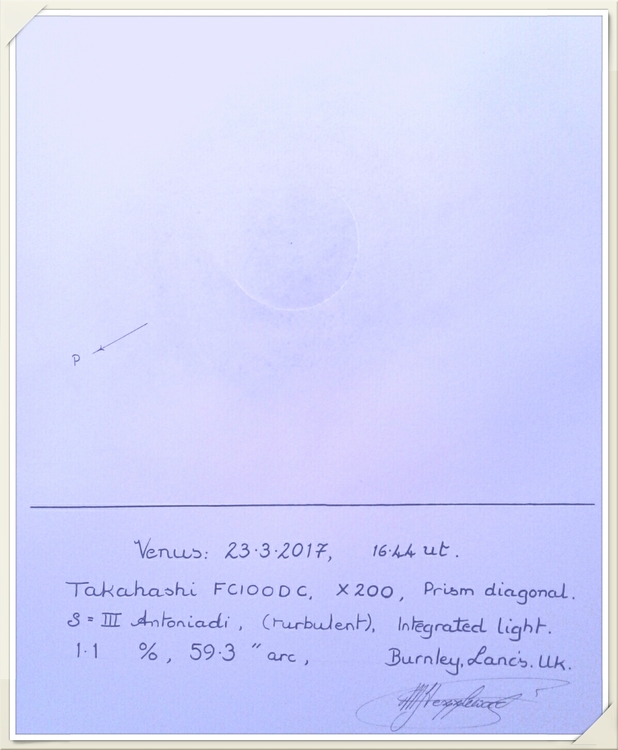 P
Venus: 23·3·2017, 16·44 ut.
Takahashi FC100DC, X200, Prism diagonal.
S = III Antoniadi, (turbulent), Integrated light.
1·1 %, 59·3 " arc, Burnley, Lancs. UK.